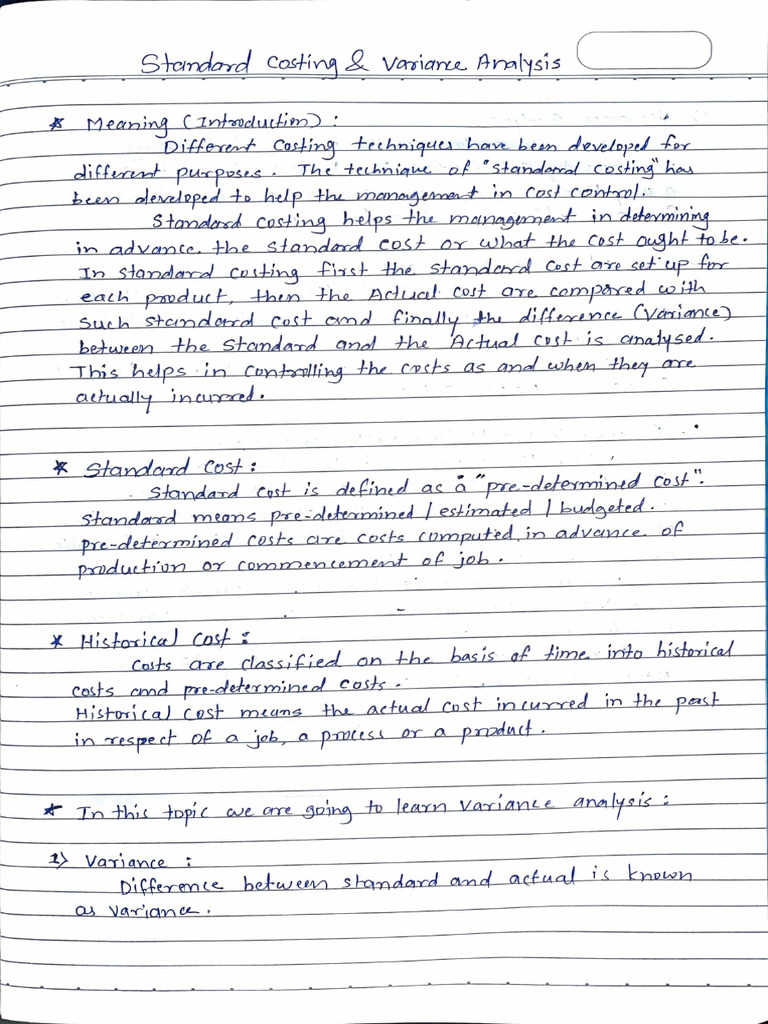 Standard Costing & Variance Analysis
* Meaning (Introduction) :
Different Costing techniques have been developed for
different purposes. The technique of "standard costing" has
been developed to help the management in cost control.
Standard Costing helps the management in determining
in advance. the standard cost or what the cost ought to be.
In standard costing first the standard cost are set up for
each product, then the Actual cost are compared with
such standard cost and finally the difference (variance)
between the Standard and the Actual Cost is analysed.
This helps in controlling the costs as and when they are
actually incurred.
* Standard Cost :
Standard Cost is defined as a "pre-determined cost".
Standard means pre-determined / estimated / budgeted.
pre-determined costs are costs computed in advance of
production or commencement of job.
* Historical Cost :
Costs are classified on the basis of time into historical
costs and pre-determined costs.
Historical cost means the actual cost incurred in the past
in respect of a job, a process or a product.
* In this topic we are going to learn variance analysis :
1) Variance :
Difference between standard and actual is known
as variance.